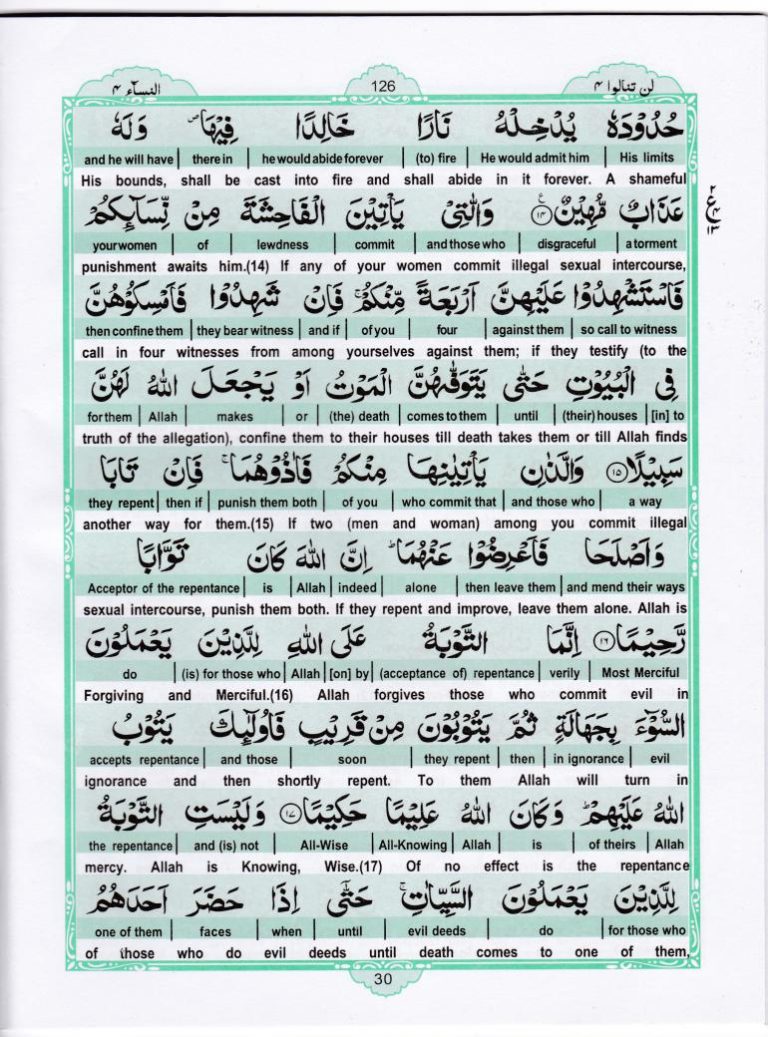 النسآء ٤ 126 لن تنالوا ٤
حُدُوْدَهٗ يُدْخِلْهُ نَارًا خَالِدًا فِيْهَا ۪ وَلَهٗ
and he will have | there in | he would abide forever | (to) fire | He would admit him | His limits
His bounds, shall be cast into fire and shall abide in it forever. A shameful
عَذَابٌ مُّهِيْنٌ ۧ ﴿١٤﴾ وَالّٰتِيْ يَاْتِيْنَ الْفَاحِشَةَ مِنْ نِّسَآىِٕكُمْ
your women | of | lewdness | commit | and those who | disgraceful | a torment
٢
ع
٤
١٣
punishment awaits him.(14) If any of your women commit illegal sexual intercourse,
فَاسْتَشْهِدُوْا عَلَيْهِنَّ اَرْبَعَةً مِّنْكُمْ ۚ فَاِنْ شَهِدُوْا فَاَمْسِكُوْهُنَّ
then confine them | they bear witness | and if | of you | four | against them | so call to witness
call in four witnesses from among yourselves against them; if they testify (to the
فِي الْبُيُوْتِ حَتّٰى يَتَوَفّٰىهُنَّ الْمَوْتُ اَوْ يَجْعَلَ اللّٰهُ لَهُنَّ
for them | Allah | makes | or | (the) death | comes to them | until | (their) houses | [in] to
truth of the allegation), confine them to their houses till death takes them or till Allah finds
سَبِيْلًا ﴿١٥﴾ وَالَّذٰنِ يَاْتِيٰنِهَا مِنْكُمْ فَاٰذُوْهُمَا ۚ فَاِنْ تَابَا
they repent | then if | punish them both | of you | who commit that | and those who | a way
another way for them.(15) If two (men and woman) among you commit illegal
وَاَصْلَحَا فَاَعْرِضُوْا عَنْهُمَا ؕ اِنَّ اللّٰهَ كَانَ تَوَّابًا
Acceptor of the repentance | is | Allah | indeed | alone | then leave them | and mend their ways
sexual intercourse, punish them both. If they repent and improve, leave them alone. Allah is
رَّحِيْمًا ﴿١٦﴾ اِنَّمَا التَّوْبَةُ عَلَى اللّٰهِ لِلَّذِيْنَ يَعْمَلُوْنَ
do | (is) for those who | Allah | [on] by | (acceptance of) repentance | verily | Most Merciful
Forgiving and Merciful.(16) Allah forgives those who commit evil in
السُّوْٓءَ بِجَهَالَةٍ ثُمَّ يَتُوْبُوْنَ مِنْ قَرِيْبٍ فَاُولٰٓىِٕكَ يَتُوْبُ
accepts repentance | and those | soon | they repent | then | in ignorance | evil
ignorance and then shortly repent. To them Allah will turn in
اللّٰهُ عَلَيْهِمْ ؕ وَكَانَ اللّٰهُ عَلِيْمًا حَكِيْمًا ﴿١٧﴾ وَلَيْسَتِ التَّوْبَةُ
the repentance | and (is) not | All-Wise | All-Knowing | Allah | is | of theirs | Allah
mercy. Allah is Knowing, Wise.(17) Of no effect is the repentance
لِلَّذِيْنَ يَعْمَلُوْنَ السَّيِّاٰتِ ۚ حَتّٰى اِذَا حَضَرَ اَحَدَهُمُ
one of them | faces | when | until | evil deeds | do | for those who
of those who do evil deeds until death comes to one of them,
30